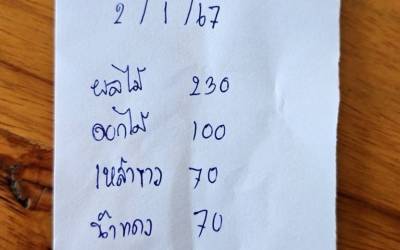 2/1/67
ผลไม้ 230
ดอกไม้ 100
เหล้าขาว 70
น้ำแดง 70